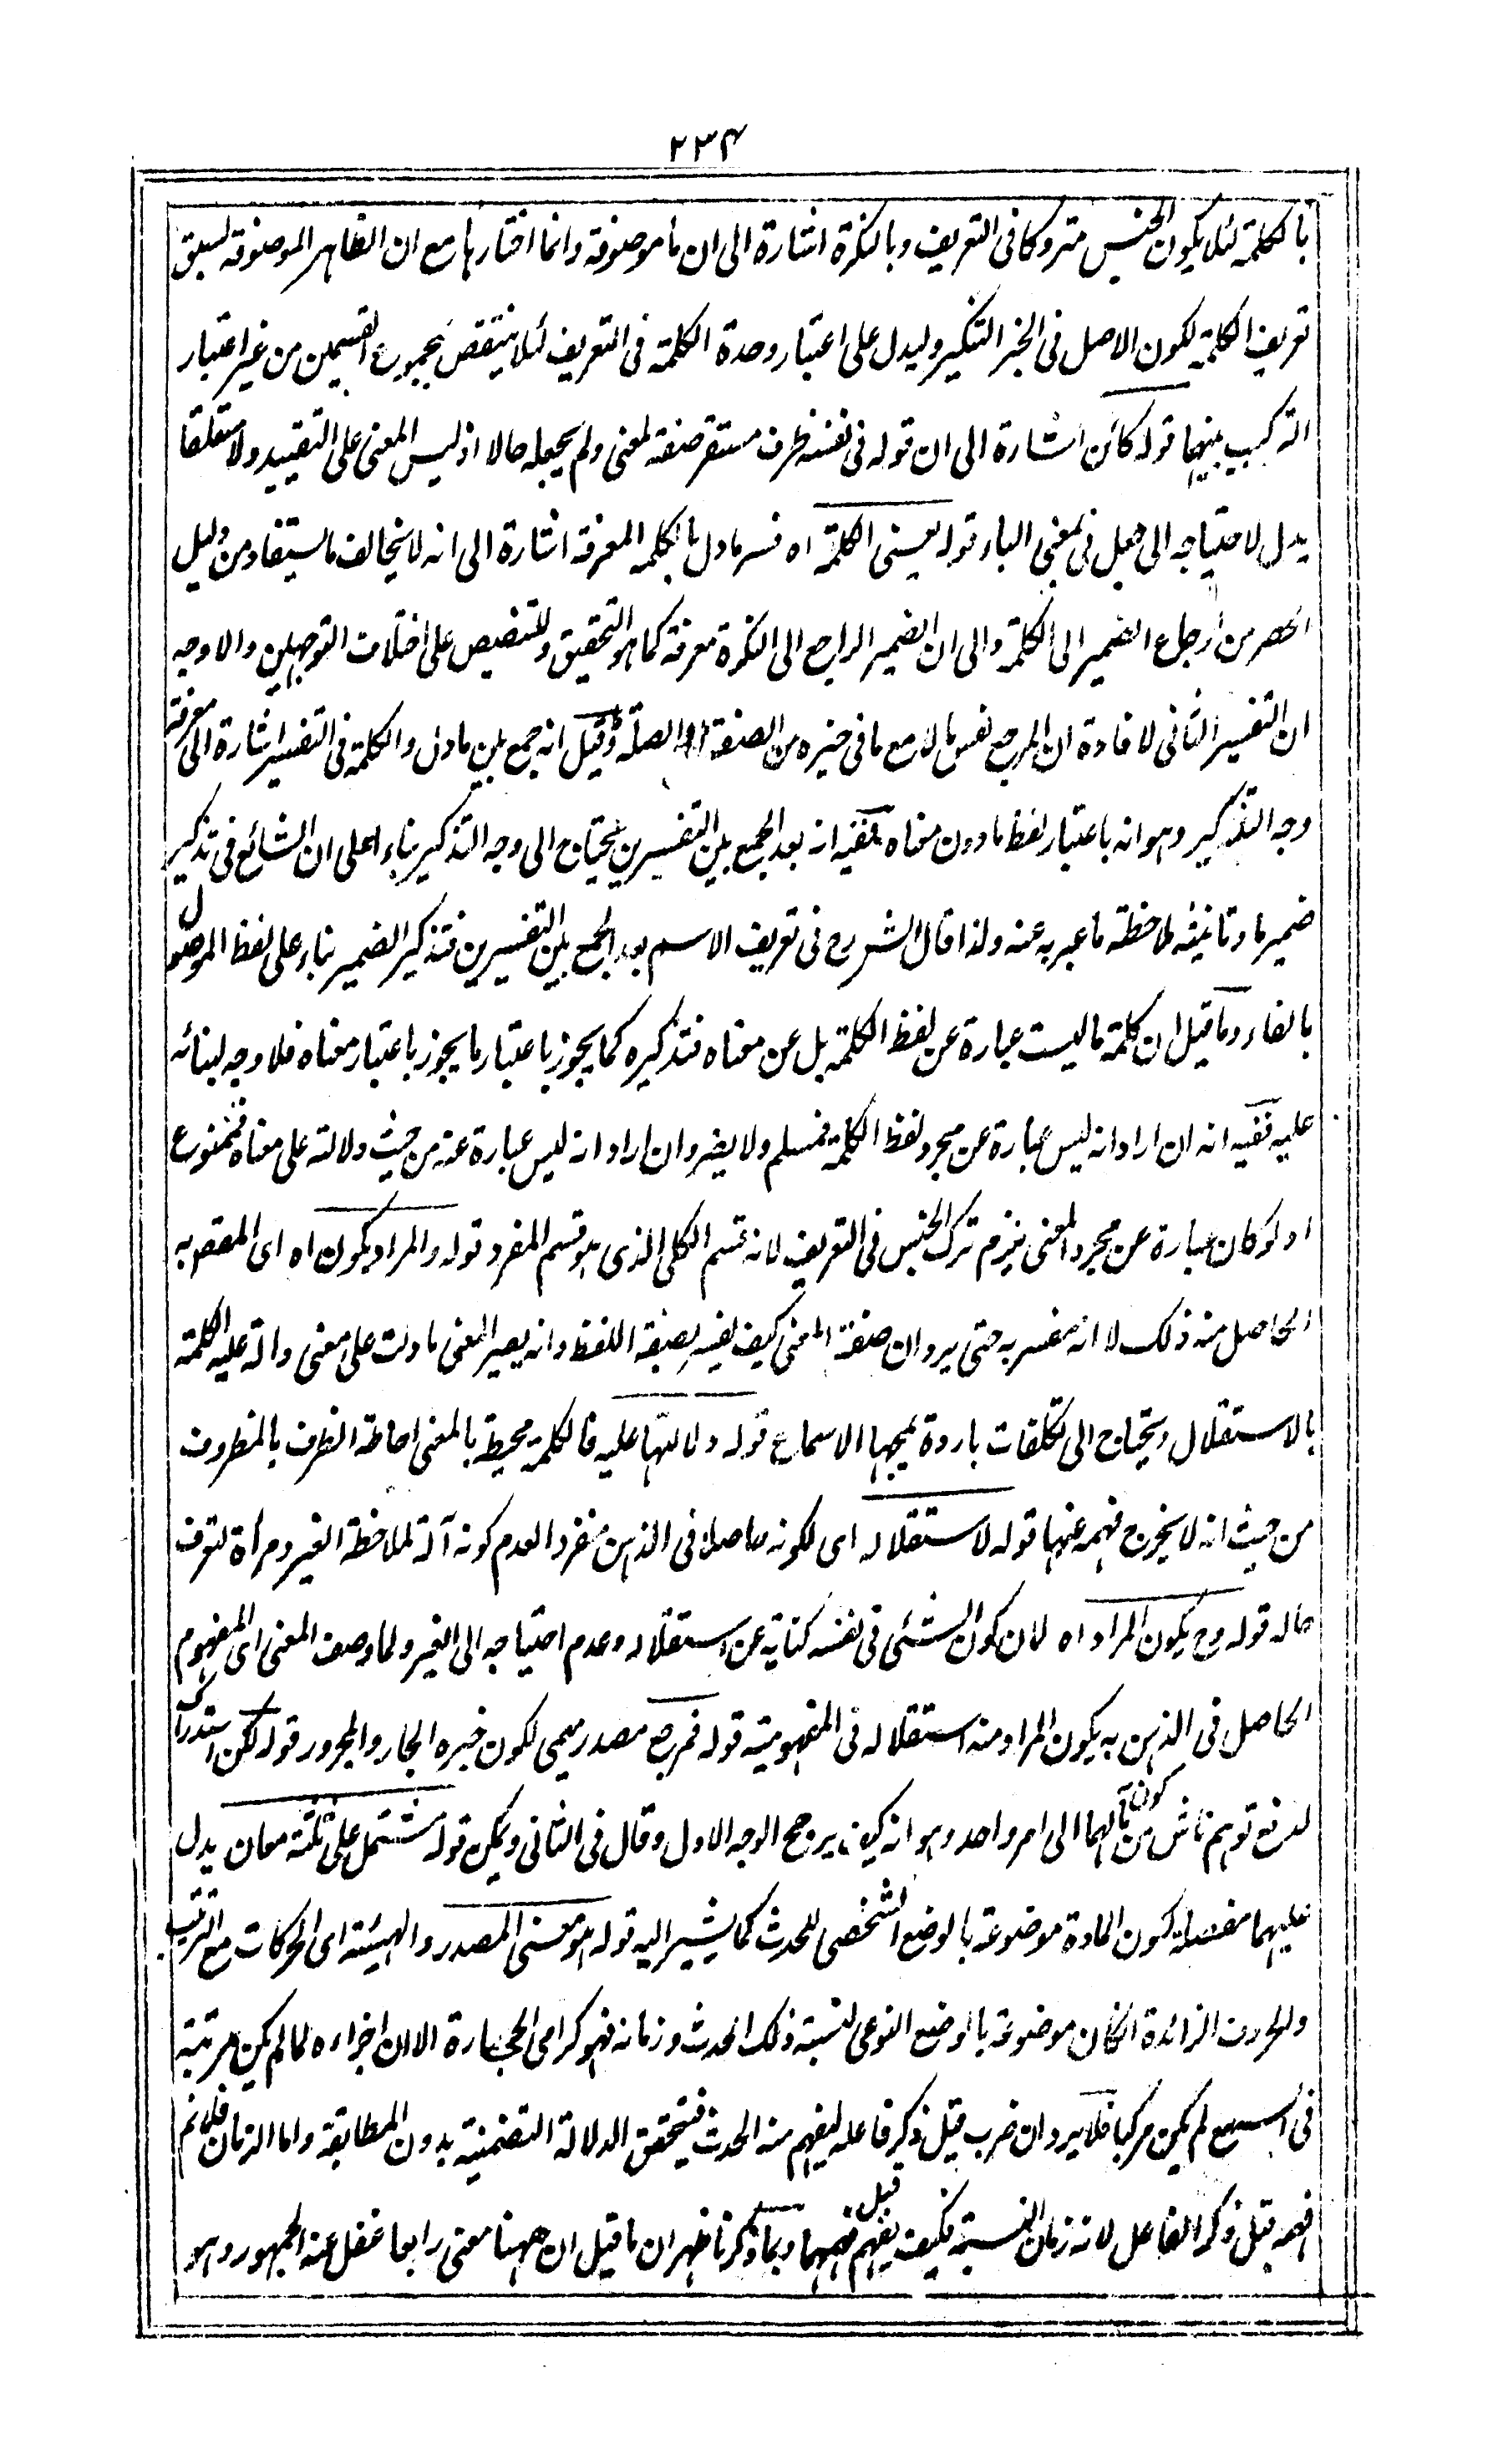 ٢٣٤
بالكلمة لئلا يكون الجنس متروكا فى التعريف وبالنكرة اشارة الى ان ما موصوفة وانما اختارها مع ان الظاهر الموصوفة لسبق
تعريف الكلمة لكون الاصل فى الخبر التنكير وليدل على اعتبار وحدة الكلمة فى التعريف لئلا ينتقض بمجموع القسمين من غير اعتبار
التركيب بينهما قوله كائن اشارة الى ان قوله فى نفسه ظرف مستقر صفة لمعنى ولم يجعله حالا اذ ليس المعنى على التقييد ولا متعلقا
بدل لاحتياجه الى جعل فى بمعنى الباء قوله يعنى الكلمة اه فسر ما دل بالكلمة المعرفة اشارة الى انه لا يخالف ما يستفاد من دليل
الحصر من ارجاع الضمير الى الكلمة والى ان الضمير الراجع الى النكرة معرفة كما هو التحقيق وللتنصيص على اختلاف التوجيهين والاوجه
ان التفسير الثانى لافادة ان المرجع نفس ما لا مع ما فى حيزه من الصفة او الصلة وقيل انه جمع بين ما دل والكلمة فى التفسير اشارة الى معرفة
وجه التذكير وهو انه باعتبار لفظ ما دون معناه ففيه انه بعد الجمع بين التفسيرين يحتاج الى وجه التذكير بناء على ان الشائع فى تذكير
ضمير ما وتانيثه ملاحظة ما عبر به عنه ولذا قال الش رح فى تعريف الاسم بعد الجمع بين التفسيرين فتذكير الضمير بناء على لفظ الموصول
بالفاء وما قيل ان كلمة ما ليست عبارة عن لفظ الكلمة بل عن معناه فتذكيره كما يجوز باعتبار ما يجوز باعتبار معناه فلا وجه لبنائه
عليه ففيه انه ان اراد انه ليس عبارة عن مجرد لفظ الكلمة فمسلم ولا يضر وان اراد انه ليس عبارة عنه من حيث دلالته على معناه فممنوع
اذ لو كان عبارة عن مجرد المعنى يلزم ترك الجنس فى التعريف لانه قسم الكلى الذى هو قسم المفرد قوله والمراد بكون اه اى المقصود به
الحاصل منه ذلك لا انه مفسر به حتى يرد ان صفة المعنى كيف يفسر بصفة اللفظ وانه يصير المعنى ما دلت على معنى دالة عليه الكلمة
بالاستقلال ويحتاج الى تكلفات باردة يمجها الاسماع قوله ودلالتها عليه فالكلمة محيطة بالمعنى احاطة الظرف بالمظروف
من حيث انه لا يخرج فهمه عنها قوله لاستقلاله اى لكونه حاصلا فى الذهن منفردا لعدم كونه آلة لملاحظة الغير ومرأة لتعرف
حاله قوله وح يكون المراد اه لان كون الشئى فى نفسه كناية عن استقلاله وعدم احتياجه الى الغير ولما وصف المعنى اى المفهوم
الحاصل فى الذهن به يكون المراد منه استقلاله فى المفهومية قوله فمرجع مصدر ميمى لكون خبره الجار والمجرور قوله لكن استدراك
لدفع توهم ناش من كون مآلهما الى امر واحد وهو انه كيف يرجح الوجه الاول وقال فى الثانى ويمكن قوله مشتمل على ثلثة معان يدل
عليهما مفصلة لكون المادة موضوعة بالوضع الشخصى للحدث كما يشير اليه قوله هو معنى المصدر والهيئة اى الحركات مع الترتيب
والحروف الزائدة انكان موضوعة بالوضع النوعى لنسبة ذلك الحدث وزمانه فهو كرامى الحجارة الا ان اجزاءه لما لم يكن مرتبة
فى السمع لم يكن مركبا فلا يرد ان ضرب قبل ذكر فاعله ليفهم منه الحدث فيتحقق الدلالة التضمنية بدون المطابقة واما الزمان فلا نم
فهمه قبل ذكر الفاعل لانه زمان النسبة فكيف يفهم قبل فهمها وبما ذكرنا ظهر ان ما قيل ان ههنا معنى رابعا غفل عنه الجمهور وهو